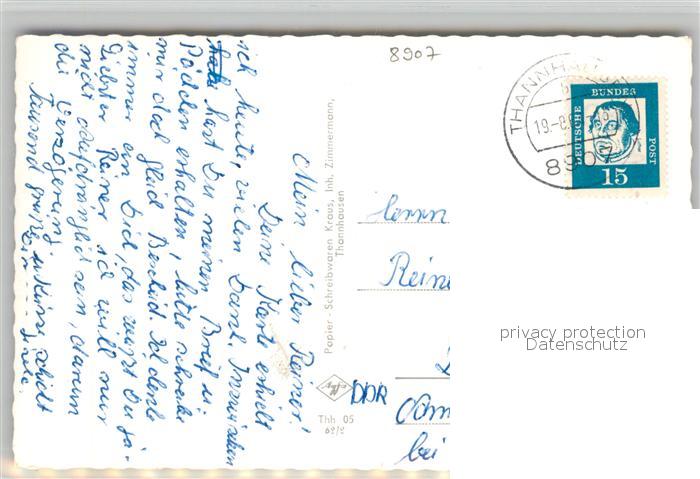 8907
Mein lieber Reiner!
Deine Karte erhielt
ich heute, vielen Dank. Inzwischen
hast Du meinen Brief u.
Päckchen erhalten, bitte schreibe
mir doch gleich Bescheid. Ich denke
immer an Dich, das weißt Du ja.
Liebster Reiner ich will nur
nicht aufdringlich sein, darum
die Verzögerung.
Tausend Grüße u. Küsse, schickt
Dir
Papier - Schreibwaren Kraus, Inh. Zimmermann,
Thannhausen
Thh 05
62/2
THANNHAU
19.-8.6
8907
DEUTSCHE BUNDES POST
15
Herrn
Reine
DDR
bei
privacy protection
Datenschutz